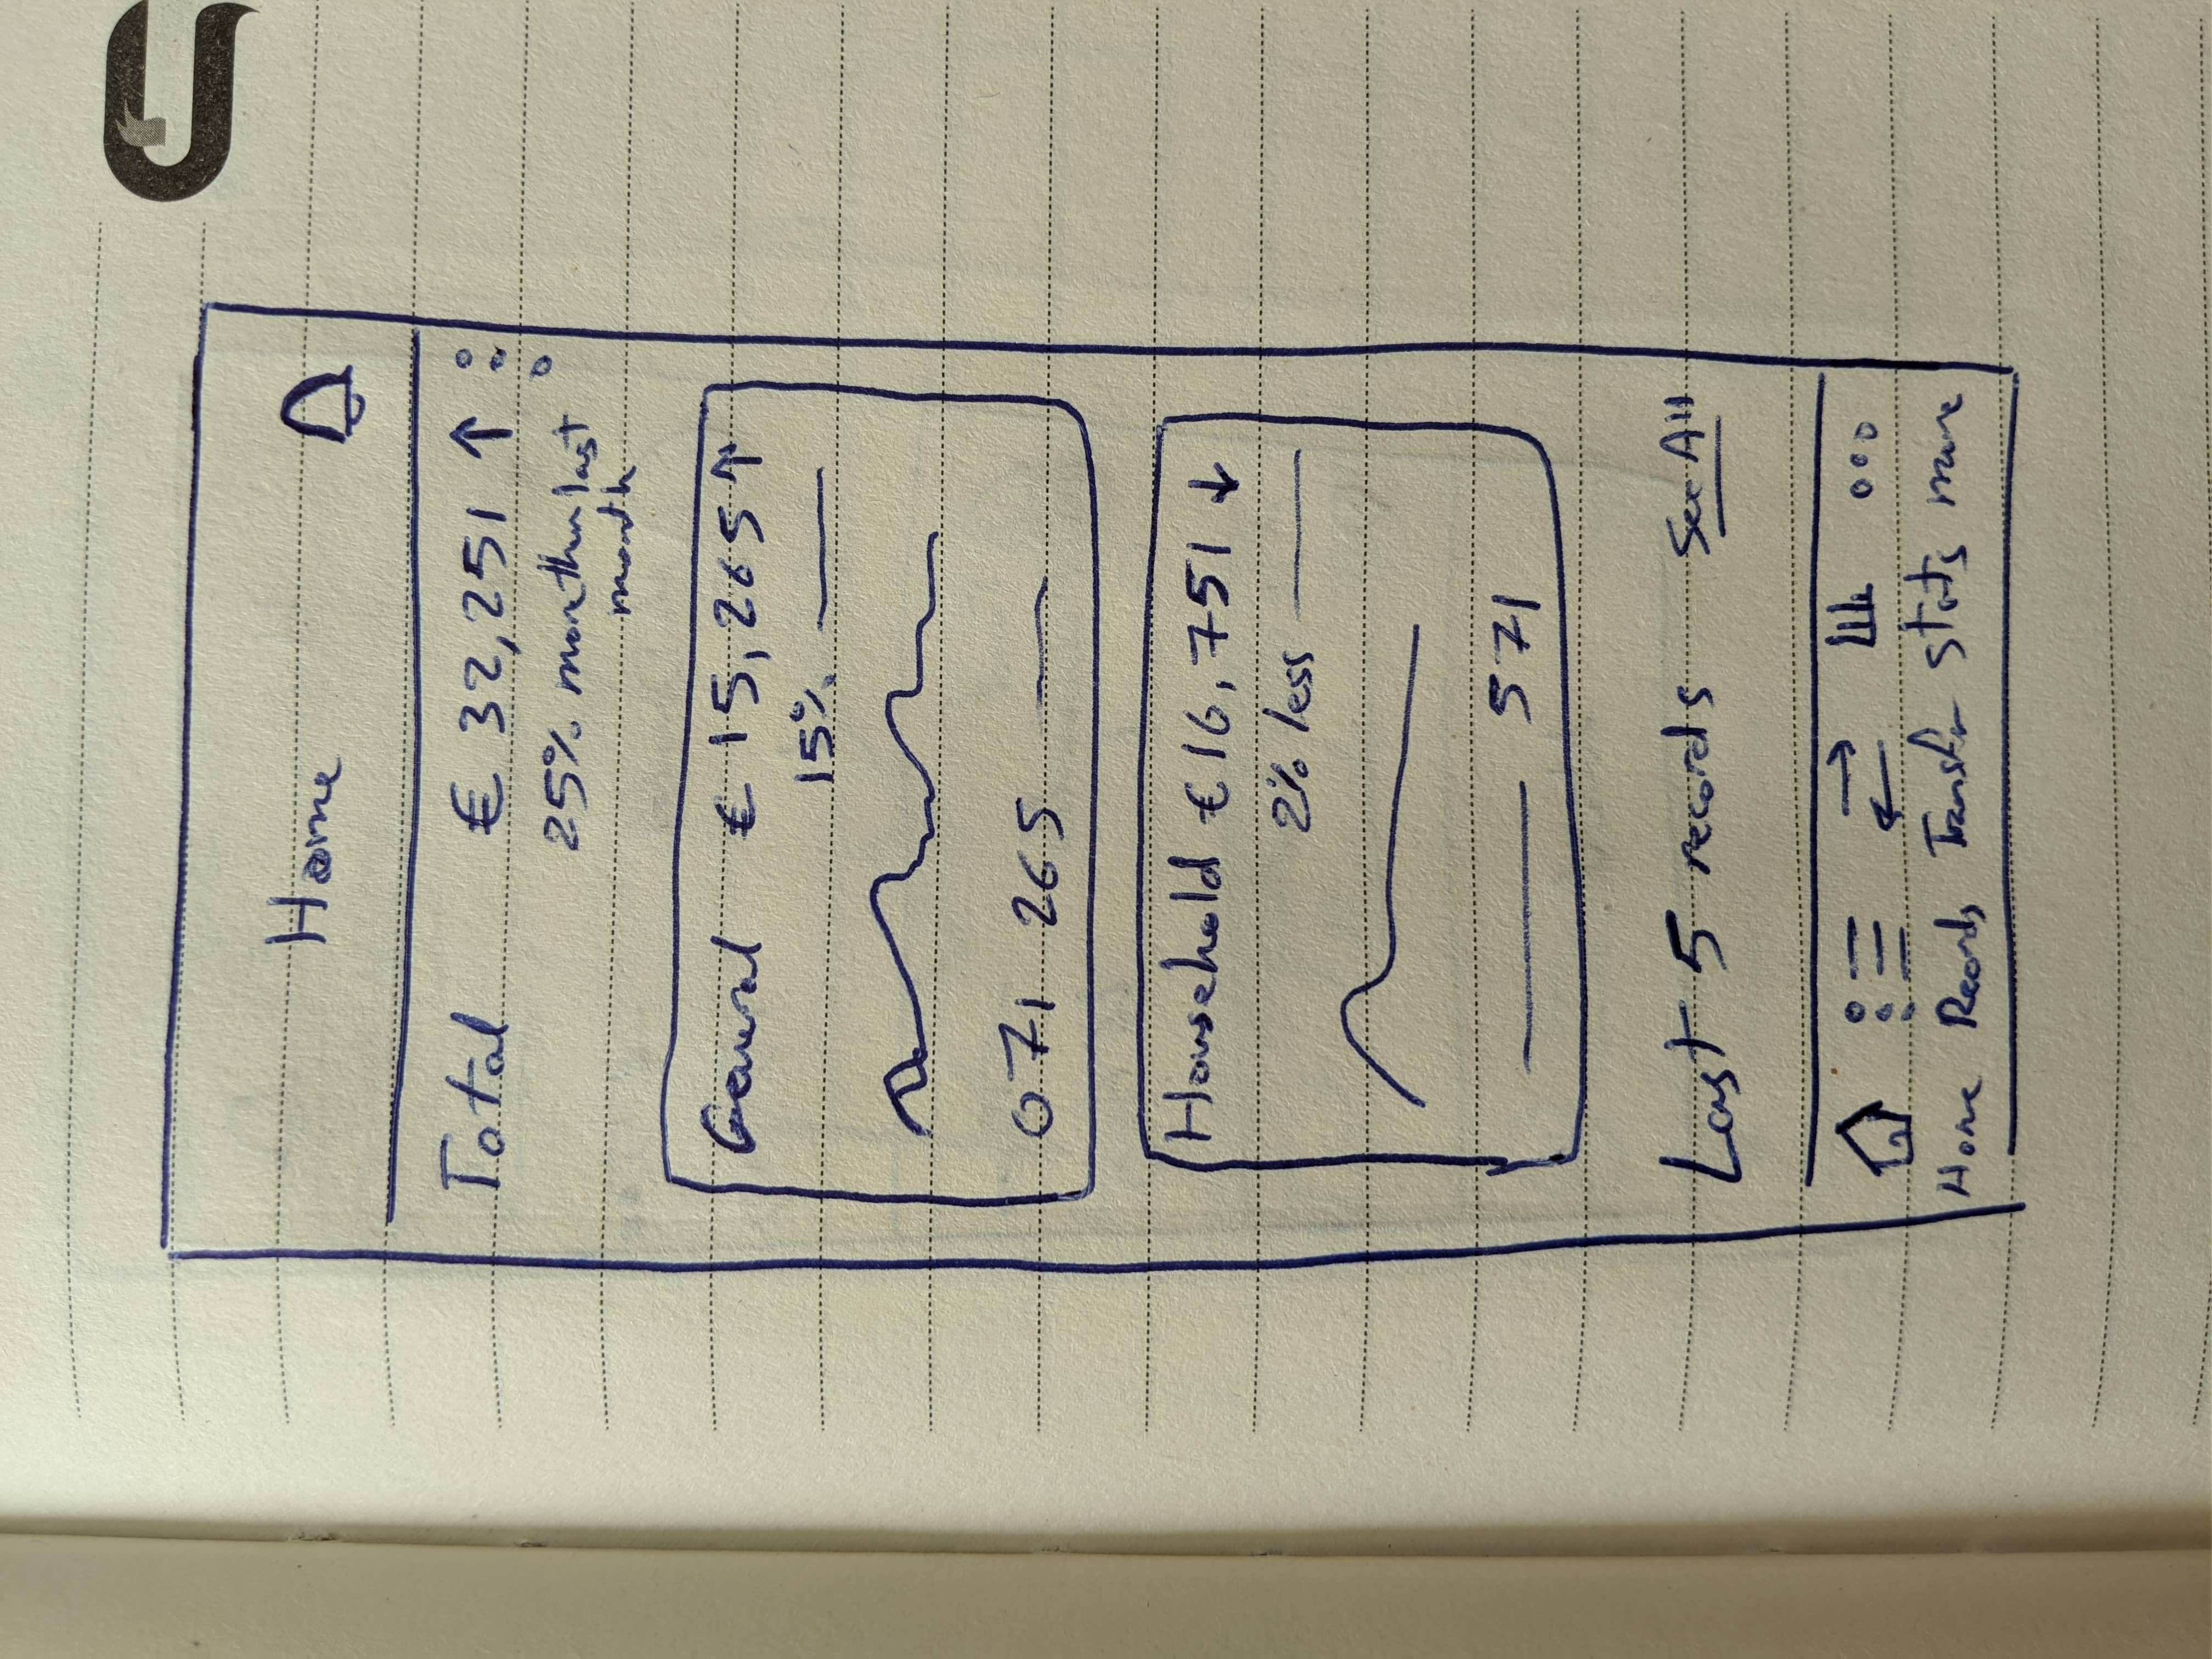 Home
Total € 32,251 ↑
25% more than last
month
General € 15,265 ↑
15%
071 265
Household € 16,751 ↓
2% less
571
Last 5 records See All
Home Records Transfer Stats more